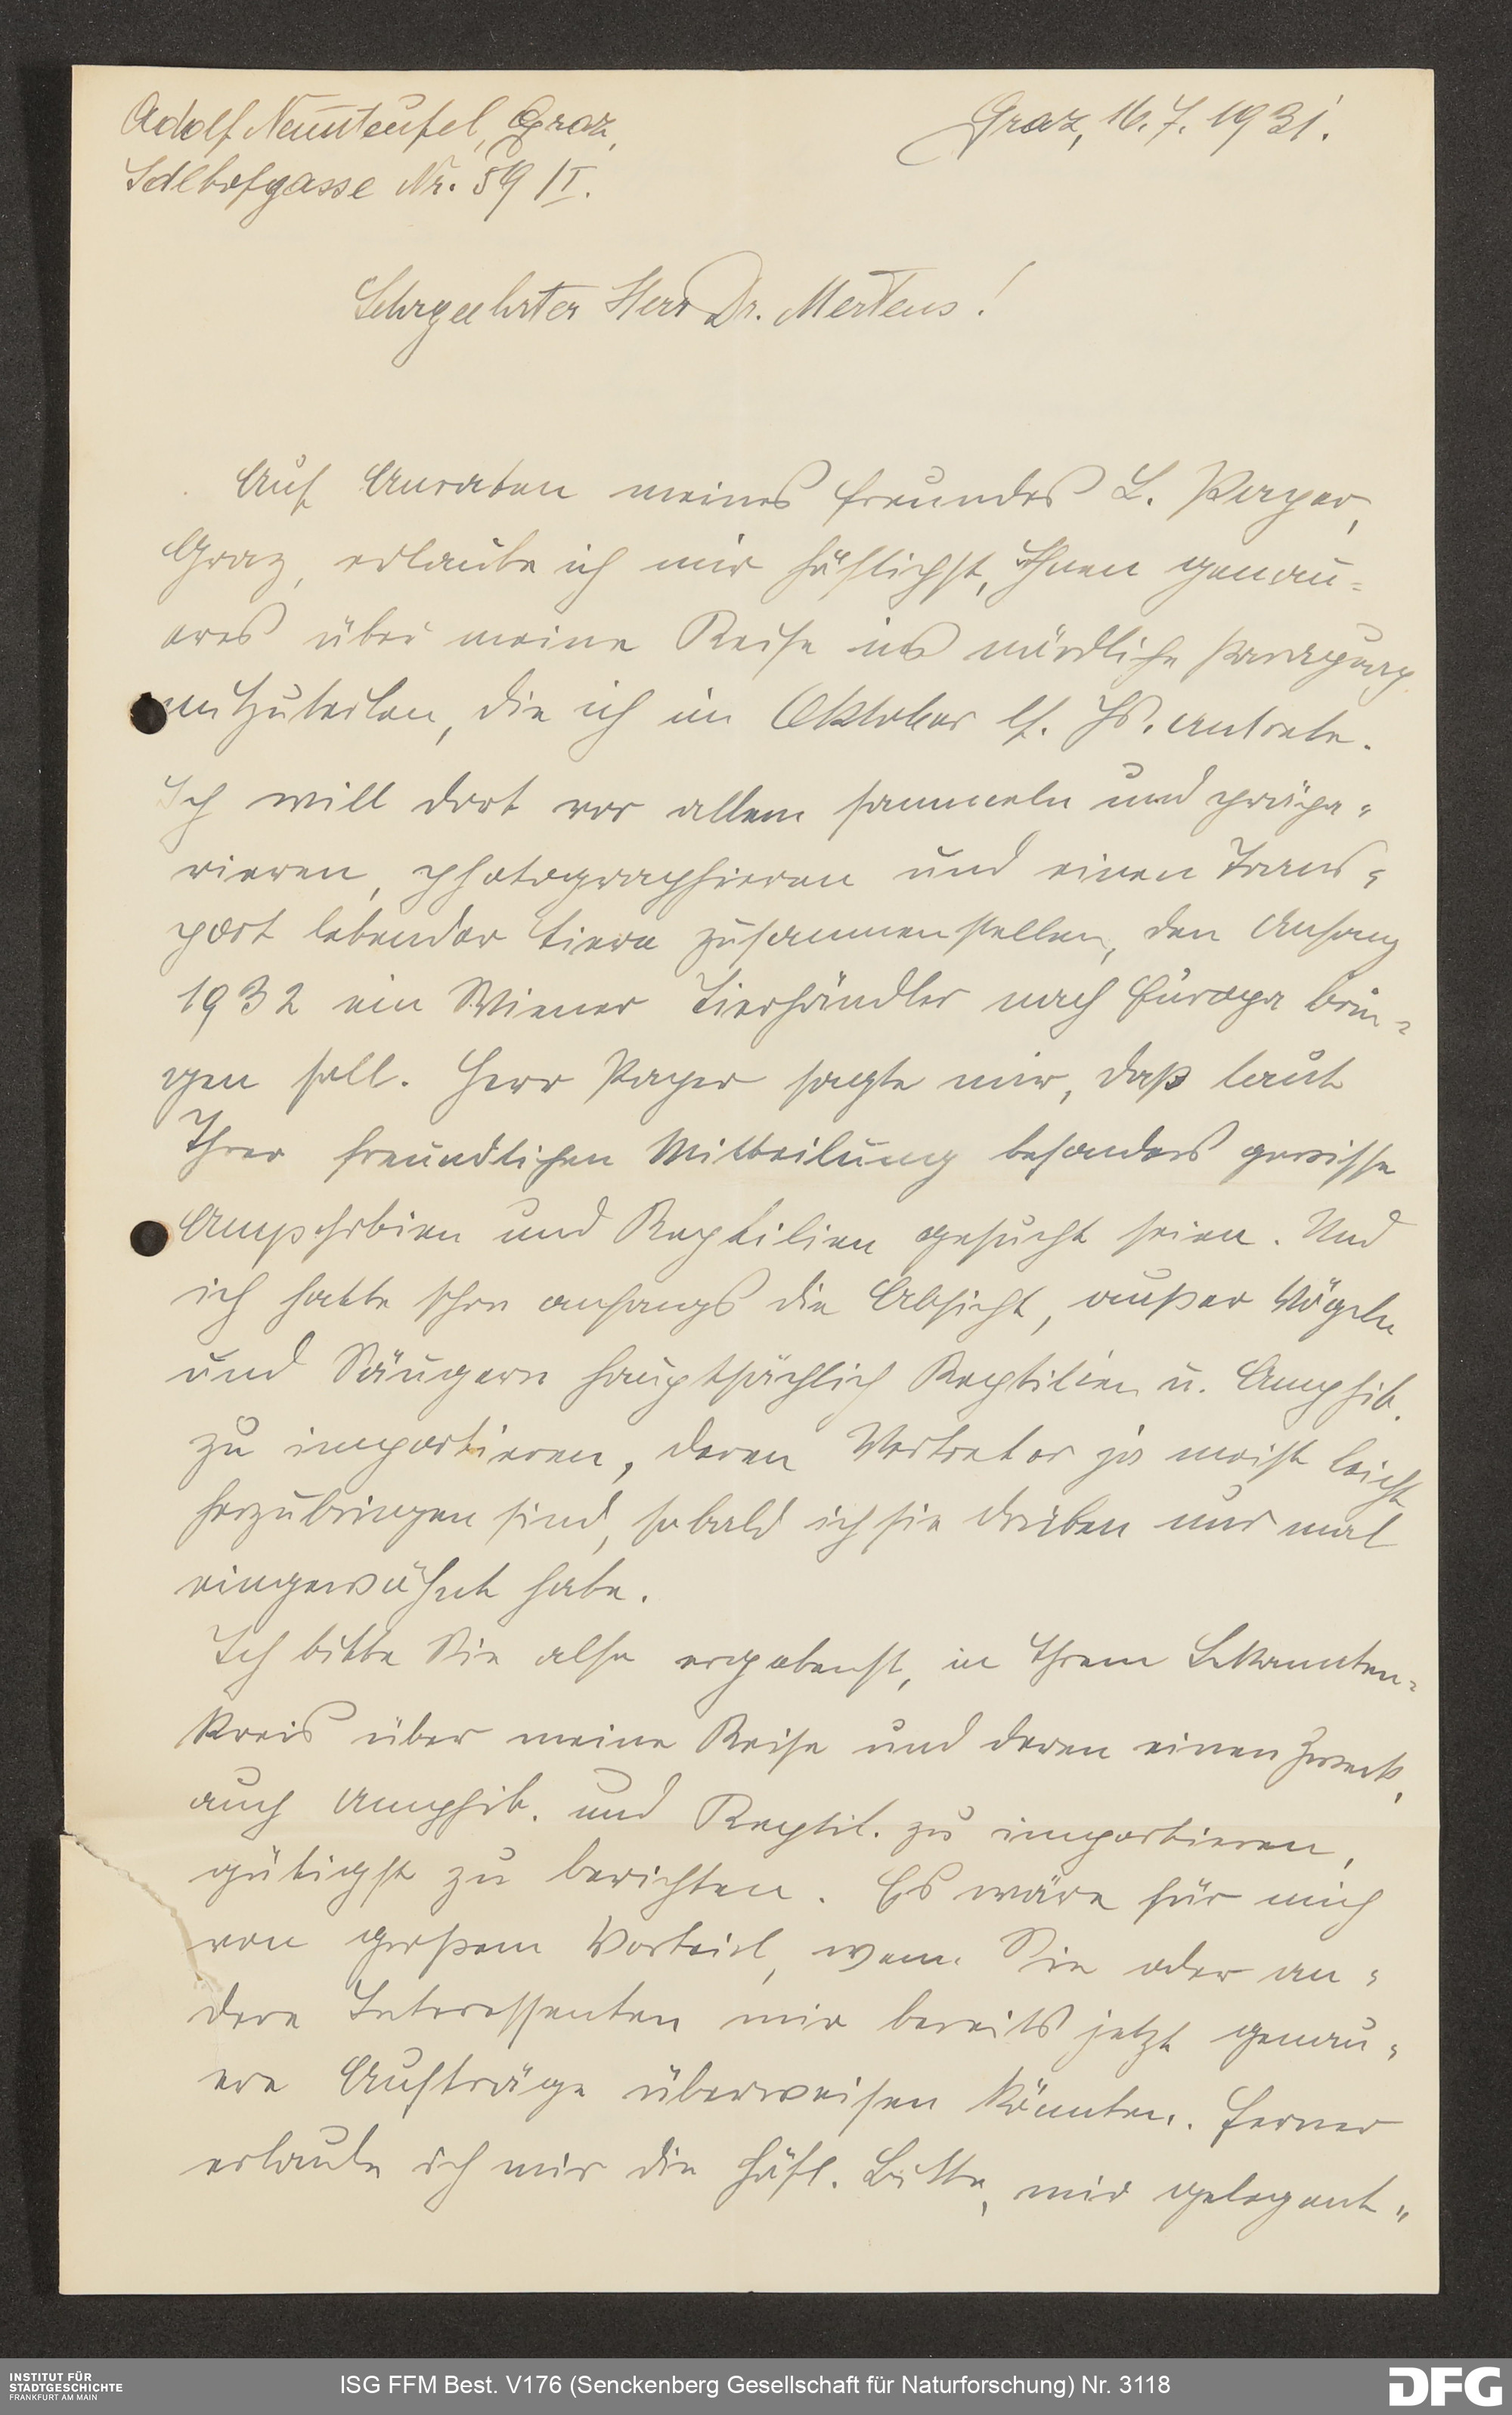 Adolf Neunteufel, Graz,
Idlhofgasse Nr. 59 /I.
Graz, 16. 7. 1931.
Sehrgeehrter Herr Dr. Mertens!
Auf Anraten meines Freundes L. Payer,
Graz, erlaube ich mir höflichst, Ihnen genau=
eres über meine Reise ins nördliche Paraguay
mitzuteilen, die ich im Oktober lf. Js. antrete.
Ich will dort vor allem sammeln und präpa=
rieren, photographieren und einen Trans=
port lebender Tiere zusammenstellen, den Anfang
1932 ein Wiener Tierhändler nach Europa brin=
gen soll. Herr Payer sagte mir, daß laut
Ihrer freundlichen Mitteilung besonders gewisse
Amphibien und Reptilien gesucht seien. Und
ich hatte schon anfangs die Absicht, außer Vögeln
und Säugern hauptsächlich Reptilien u. Amphib.
zu importieren, deren Vertreter ja meist leicht
herzubringen sind, sobald ich sie drüben nur mal
eingewöhnt habe.
Ich bitte Sie also ergebenst, in Ihrem Bekannten=
kreis über meine Reise und deren einen Zweck,
auch Amphib. und Reptil. zu importieren,
gütigst zu berichten. Es wäre für mich
von großem Vorteil, wenn Sie oder an=
dere Interessenten mir bereits jetzt genau=
ere Aufträge überweisen könnten. Ferner
erlaube ich mir die höfl. Bitte, mir gelegent=
INSTITUT FÜR
STADTGESCHICHTE
FRANKFURT AM MAIN
ISG FFM Best. V176 (Senckenberg Gesellschaft für Naturforschung) Nr. 3118
DFG